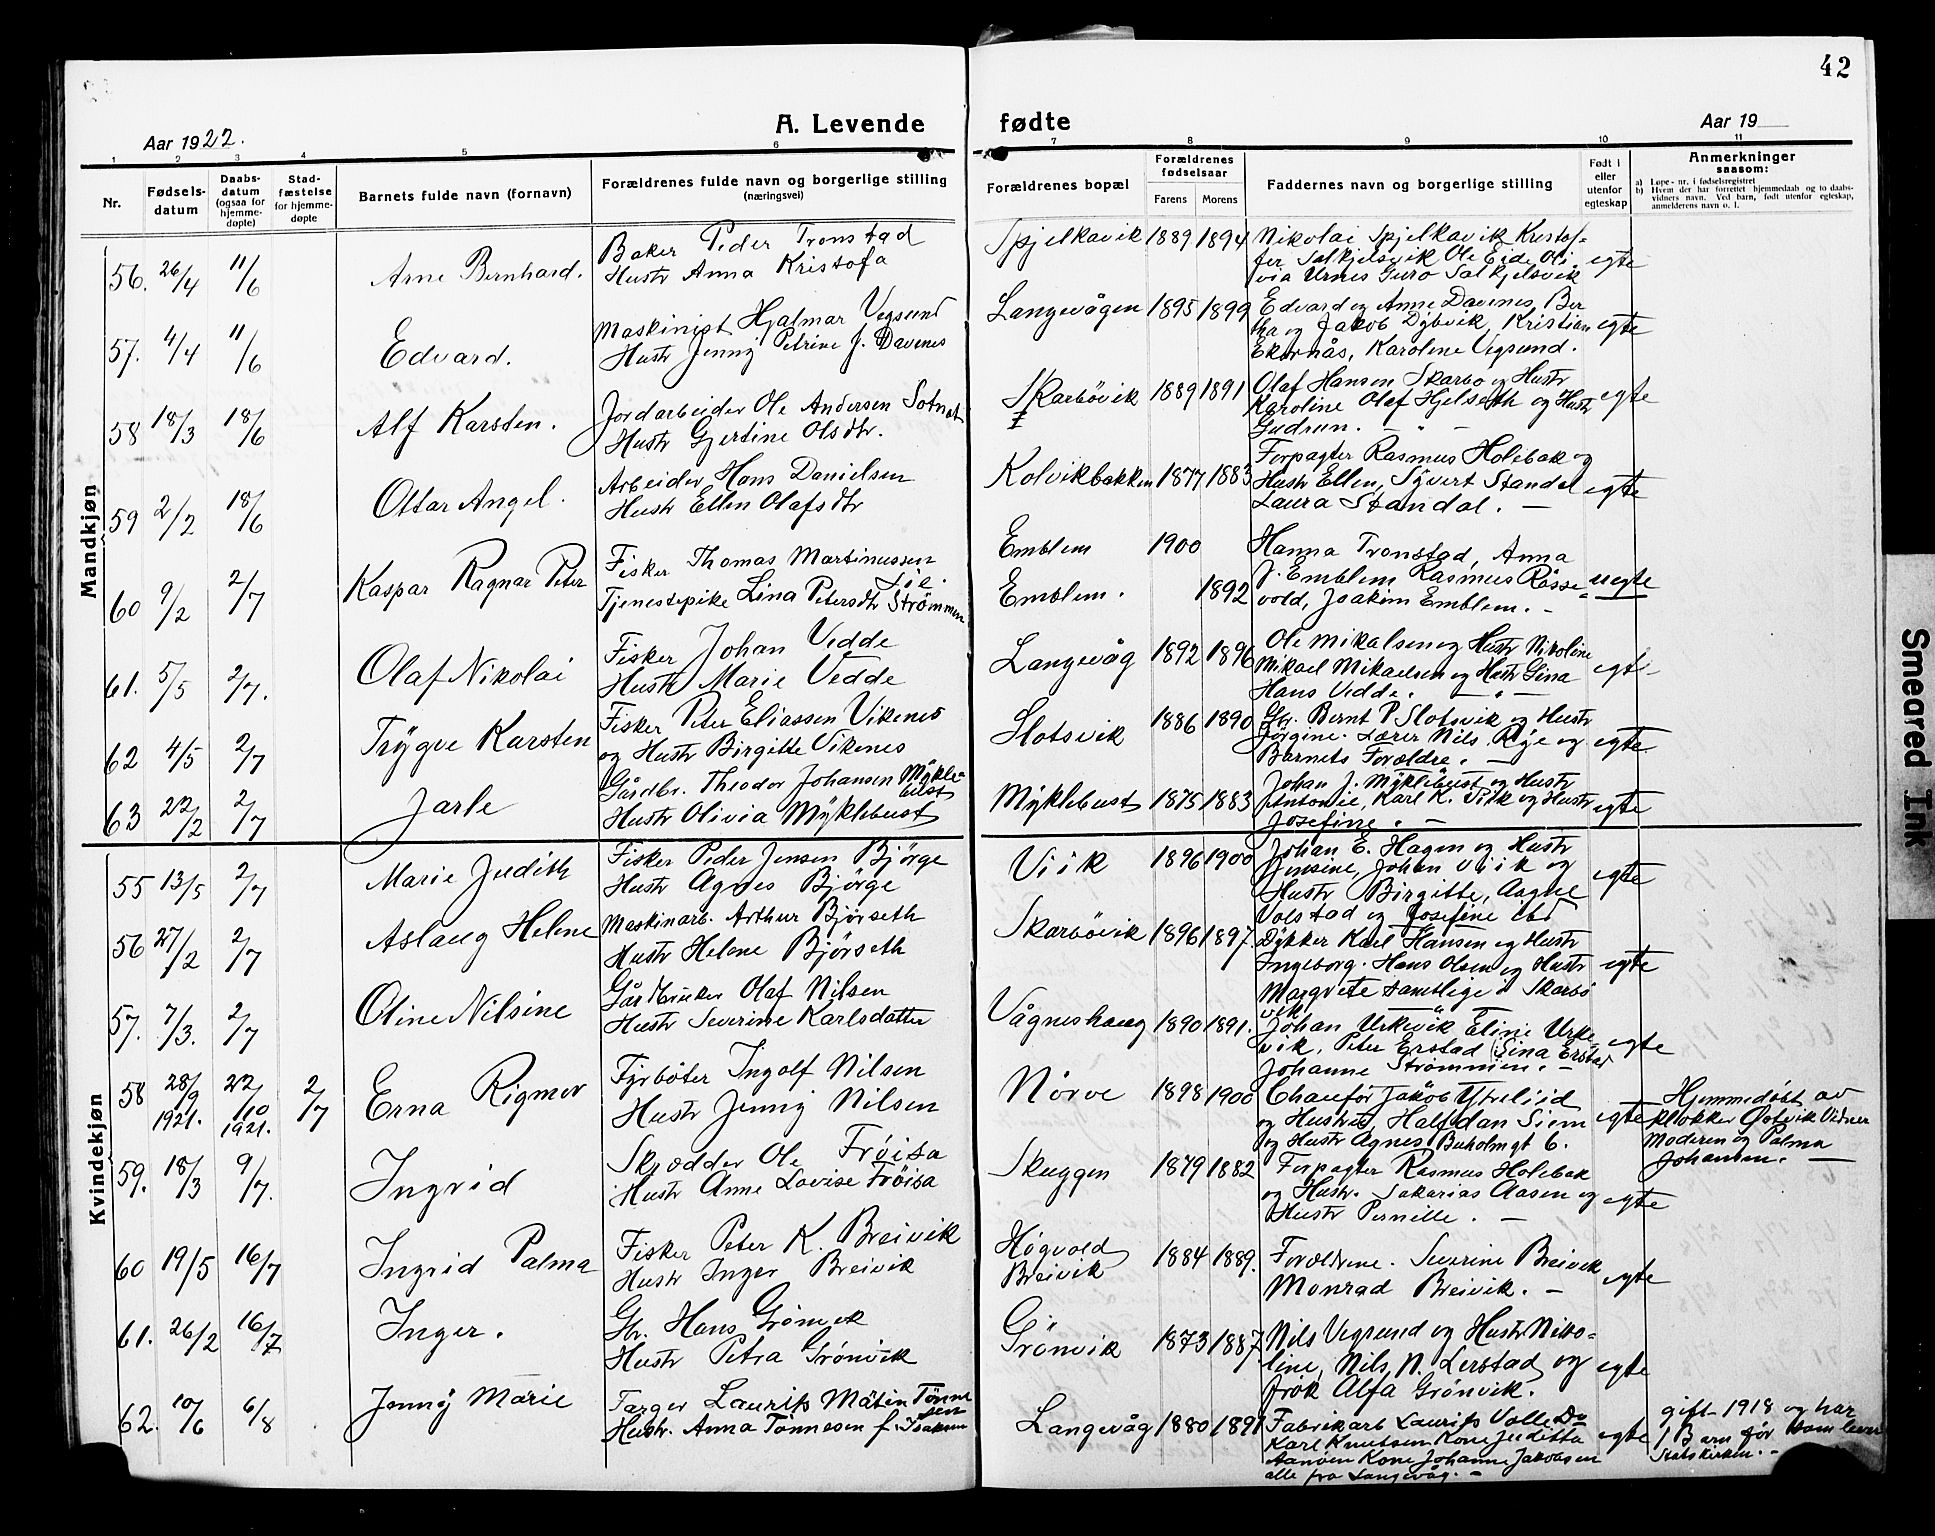 42
Aar 1922.
A. Levende fødte
Aar 19
1 2 3 4 5 6 7 8 9 10 11
Nr.
Fødsels-
datum
Daabs-
datum
(ogsaa for
hjemme-
døpte)
Stad-
fæstelse
for hjemme-
døpte
Barnets fulde navn (fornavn)
Forældrenes fulde navn og borgerlige stilling
(næringsvei)
Forældrenes bopæl
Forældrenes
fødselsaar
Farens Morens
Faddernes navn og borgerlige stilling
Født i
eller
utenfor
egteskap
Anmerkninger
saasom:
a) Løpe-nr. i fødselsregistret
b) Hvem der har forrettet hjemmedaab og to daabs-
vidners navn. Ved barn, født utenfor egteskap,
anmelderens navn o. l.
Mandkjøn
56. 26/4 11/6 Arne Bernhard.
Baker Peder Tronstad
Hustr Anna Kristofa
Spjelkavik 1889 1894
Nikolai Spjelkavik Kristof-
fer Salkjelsvik Ole Eide Oli
via Urnes Guro Salkjelsvik
egte
57. 4/4 11/6 Edvard.
Maskinist Hjalmar Vegsund
Hustr Jenny Petrine J. Davenes
Langevågen 1895 1899
Edvard og Anne Davenes, Ber
tha og Jakob Dybvik, Kristian
Ekornås, Karoline Vegsund.
egte
58 18/3 18/6 Alf Karsten.
Jordarbeider Ole Andersen Sotnak
Hustr Gjertine Olsdtr.
Skarbövik 1889 1891
Olaf Hansen Skarbö og Hustr
Karoline Olaf Hjelseth og Hustr
Gudrun. — " —
egte
59 2/2 18/6 Ottar Angel.
Arbeider Hans Danielsen
Hustr Ellen Olafsdtr
Kolvikbakken 1877 1883
Forpagter Rasmus Holebak og
Hustr Ellen, Syvert Standal
Laura Standal. —
egte
60 9/2 2/7 Kaspar Ragnar Peter
Fisker Thomas Martinussen
Tjenestepike Lina Petersdtr Strömmen
Emblem 1900
Emblem. 1892
Hanna Tronstad, Anna
J. Emblem Rasmus Rösse-
vold, Joakim Emblem. —
uegte
61. 5/5 2/7. Olaf Nikolai
Fisker Johan Vedde
Hustr Marie Vedde
Langevåg 1892 1896
Ole Mikalsen og Hustr Nikoline
Mikael Mikaelsen og Hustr Gina
Hans Vedde. — " —
egt-
62 4/5 2/7 Trygve Karsten
Fisker Peter Eliassen Vikenes
og Hustr Birgitte Vikenes
Slotsvik 1886 1890
Gbr. Bernt P Slotsvik og Hustr
Jörgine. Lærer Nils Rye og
Barnets Forældre. —
egte
63 22/2 2/7 Jarle
Gårdbr. Theodor Johansen Mykle-
bust
Hustr Olivia Myklebust
Myklebust 1875 1883
Johan J. Myklebust og Hustr
Antonie, Karl K. Vik og Hustr
Josefine. —
egte
Kvindekjøn
55 13/5 2/7 Marie Judith
Fisker Peder Jensen Bjørge
Hustr Agnes Bjørge
Viik 1896 1900
Johan E. Hagen og Hustr
Jensine, Johan Viik og
Hustr Birgitte, Aagne
Volstad og Josefine ibd
egte
56 27/2 2/7 Aslaug Helene
Maskinarb. Arthur Bjørseth
Hustr Helene Bjørseth
Skarbövik 1896 1897.
Dykker Karl Hansen og Hustr
Ingeborg. Hans Olsen og Hustr
Margrete samtlige i Skarbö
vik.
egte
57. 7/3. 2/7 Oline Nilsine
Gårdbruker Olaf Nilsen
Hustr Severine Karlsdatter
Vågneshaug 1890 1891.
Johan Urkevik Eline Urke-
vik, Peter Erstad Sina Erstad
Johanne Strömmen. —
egte
58 28/9 1921. 22/10 1921. 2/7 Erna Rigmor
Fyrböter Ingolf Nilsen
Hustr Jenny Nilsen
Nörve 1898 1900
Chauför Jakob Ytrelid
og Hustru, Halfdan Siem
og Hustr Agnes Buholmgt 6.
egte
Hjemmedöbt av
klokker Østvik Vidner
Moderen og Palma
Johansen. —
59. 18/3 9/7. Ingrid
Skrædder Ole Fröisa
Hustr Anne Lovise Fröisa
Skuggen 1879 1882
Forpagter Rasmus Holebak
og Hustr. Sakarias Aasen og
Hustr Pernille. —
egte
60 19/5 16/7 Ingrid Palma
Fisker Peter K. Breivik
Hustr Inger Breivik
Högvold
Breivik 1884 1889.
Forældrene. Severine Breivik
Monrad Breivik. —
egte
61. 26/2 16/7 Inger.
Gbr. Hans Grönvik
Hustr Petra Grönvik
Grönvik 1873 1887
Nils Vegsund og Hustr Niko-
line, Nils N. Lerstad og
frök Alfa Grönvik.
egte
62. 10/6 6/8 Jenny Marie
Farger Laurits Tönne
sen
Hustr. Anna Tönnesen f. Isaksen
Langevåg 1880 1891
Fabrikarb Laurits Volle
Karl Knutsen Kone Juditta
Kone Johanne Jakobsen
alle fra Langevåg. —
egte
gift 1918 og har
1 Barn för som lever
Statskirken. —
Smeared Ink